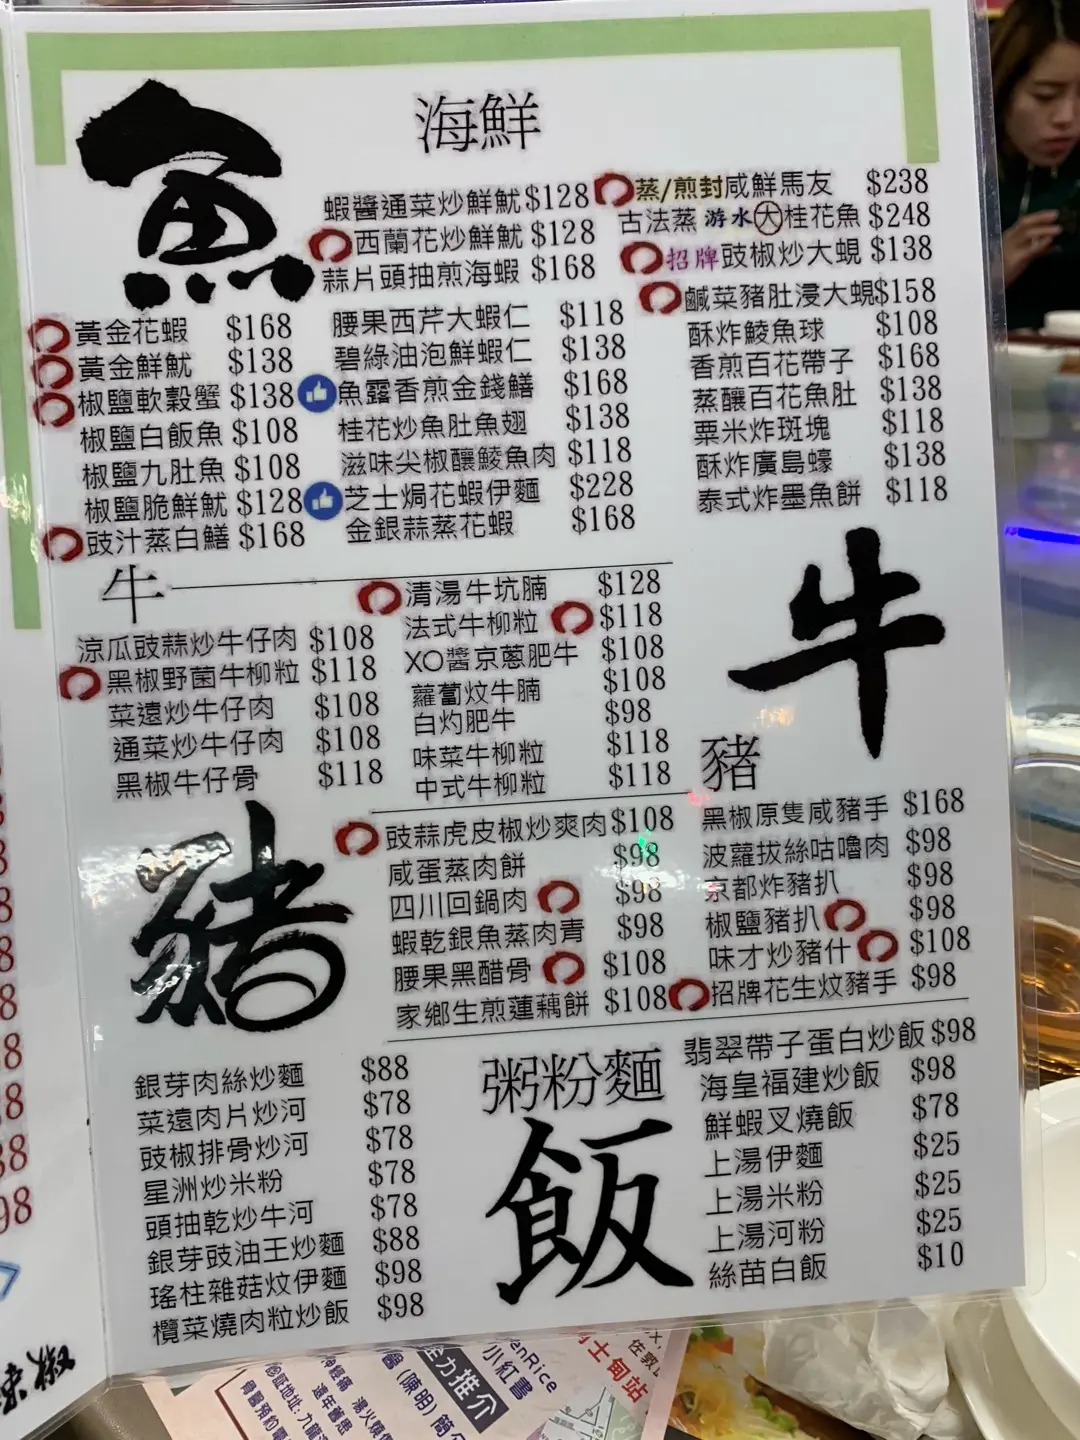 魚
海鮮
蝦醬通菜炒鮮魷 $128
西蘭花炒鮮魷 $128
蒜片頭抽煎海蝦 $168
蒸/煎封咸鮮馬友 $238
古法蒸游水大桂花魚 $248
招牌豉椒炒大蜆 $138
鹹菜豬肚浸大蜆 $158
黃金花蝦 $168
黃金鮮魷 $138
椒鹽軟穀蟹 $138
椒鹽白飯魚 $108
椒鹽九肚魚 $108
椒鹽脆鮮魷 $128
豉汁蒸白鱔 $168
腰果西芹大蝦仁 $118
碧綠油泡鮮蝦仁 $138
魚露香煎金錢鱔 $168
桂花炒魚肚魚翅 $138
滋味尖椒釀鯪魚肉 $118
芝士焗花蝦伊麵 $228
金銀蒜蒸花蝦 $168
酥炸鯪魚球 $108
香煎百花帶子 $168
蒸釀百花魚肚 $138
粟米炸斑塊 $118
酥炸廣島蠔 $138
泰式炸墨魚餅 $118
牛
牛
涼瓜豉蒜炒牛仔肉 $108
黑椒野菌牛柳粒 $118
菜遠炒牛仔肉 $108
通菜炒牛仔肉 $108
黑椒牛仔骨 $118
清湯牛坑腩 $128
法式牛柳粒 $118
XO醬京蔥肥牛 $108
蘿蔔炆牛腩 $108
白灼肥牛 $98
味菜牛柳粒 $118
中式牛柳粒 $118
豬
豬
豉蒜虎皮椒炒爽肉 $108
咸蛋蒸肉餅 $98
四川回鍋肉 $98
蝦乾銀魚蒸肉青 $98
腰果黑醋骨 $108
家鄉生煎蓮藕餅 $108
黑椒原隻咸豬手 $168
波蘿拔絲咕嚕肉 $98
京都炸豬扒 $98
椒鹽豬扒 $98
味才炒豬什 $108
招牌花生炆豬手 $98
粥粉麵
飯
銀芽肉絲炒麵 $88
菜遠肉片炒河 $78
豉椒排骨炒河 $78
星洲炒米粉 $78
頭抽乾炒牛河 $78
銀芽豉油王炒麵 $88
瑤柱雜菇炆伊麵 $98
欖菜燒肉粒炒飯 $98
翡翠帶子蛋白炒飯 $98
海皇福建炒飯 $98
鮮蝦叉燒飯 $78
上湯伊麵 $25
上湯米粉 $25
上湯河粉 $25
絲苗白飯 $10
小紅書
全力推介